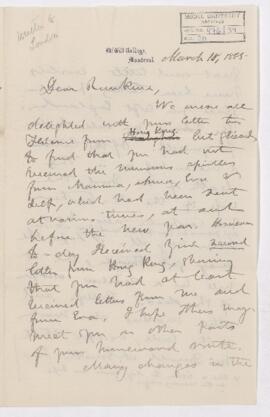 Written to
London
McGILL UNIVERSITY
ARCHIVES
ACC. NO.
McGill College,
Montreal.
March 15, 1885
Dear
We were all
delighted with your letter to
from Hong Kong, but
to find that you had not
received the numerous epistles
from Mamma, Anna, Eva &
self, which had been sent
at various times, at and
before the new year. However
to-day received your second
letter from Hong Kong, shewing
that you had at least
received letters from me and
from Eva. I hope others may
meet you in other parts
of your homeward route.
Many changes in the